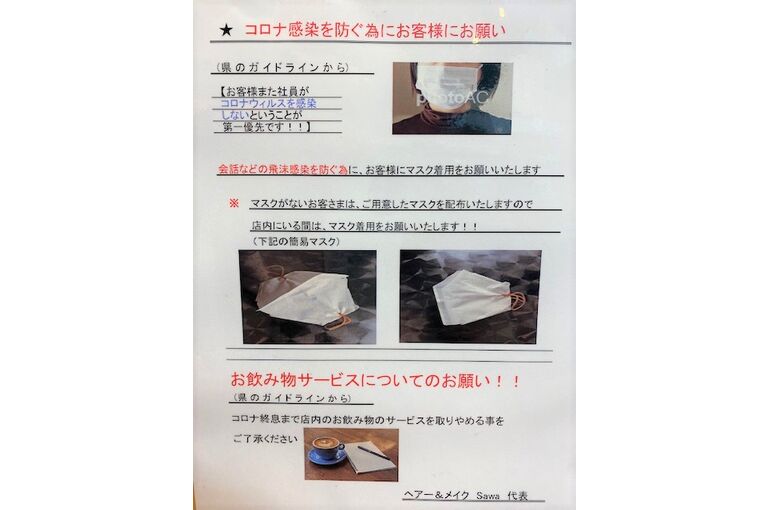 ★ コロナ感染を防ぐ為にお客様にお願い
(県のガイドラインから)
【お客様また社員が
コロナウィルスを感染
しないということが
第一優先です!!】
photoAC
会話などの飛沫感染を防ぐ為に、お客様にマスク着用をお願いいたします
※ マスクがないお客さまは、ご用意したマスクを配布いたしますので
店内にいる間は、マスク着用をお願いいたします!!
(下記の簡易マスク)
お飲み物サービスについてのお願い!!
(県のガイドラインから)
コロナ終息まで店内のお飲み物のサービスを取りやめる事を
ご了承ください
ヘアー&メイク Sawa 代表